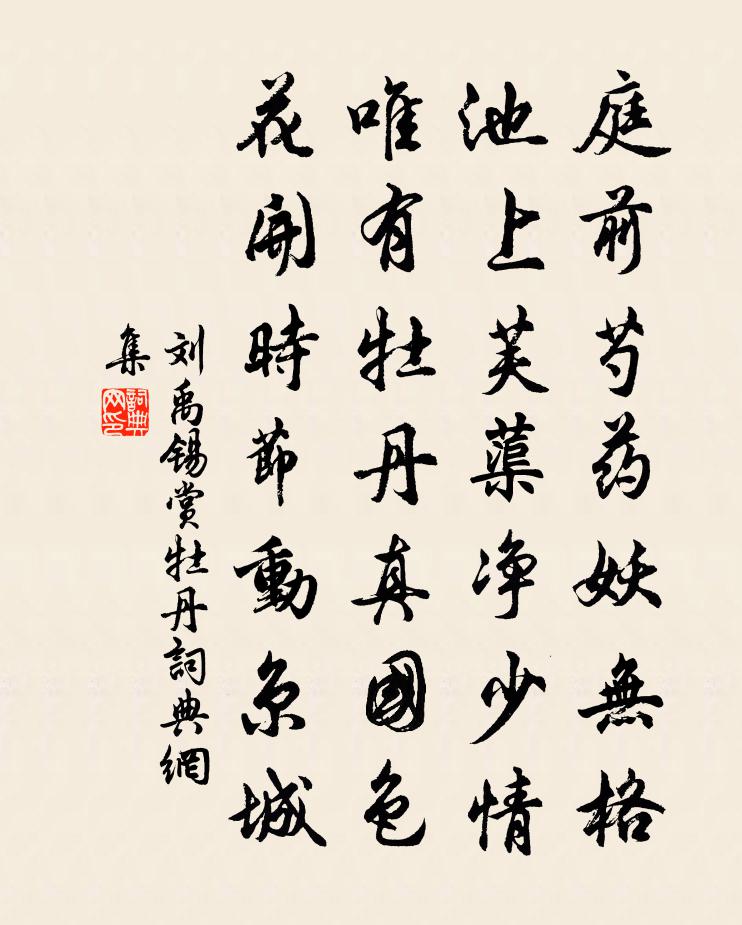 庭前芍药妖無格
池上芙蕖净少情
唯有牡丹真國色
花開時節動京城
刘禹锡赏牡丹詞典網
集
詞典网印